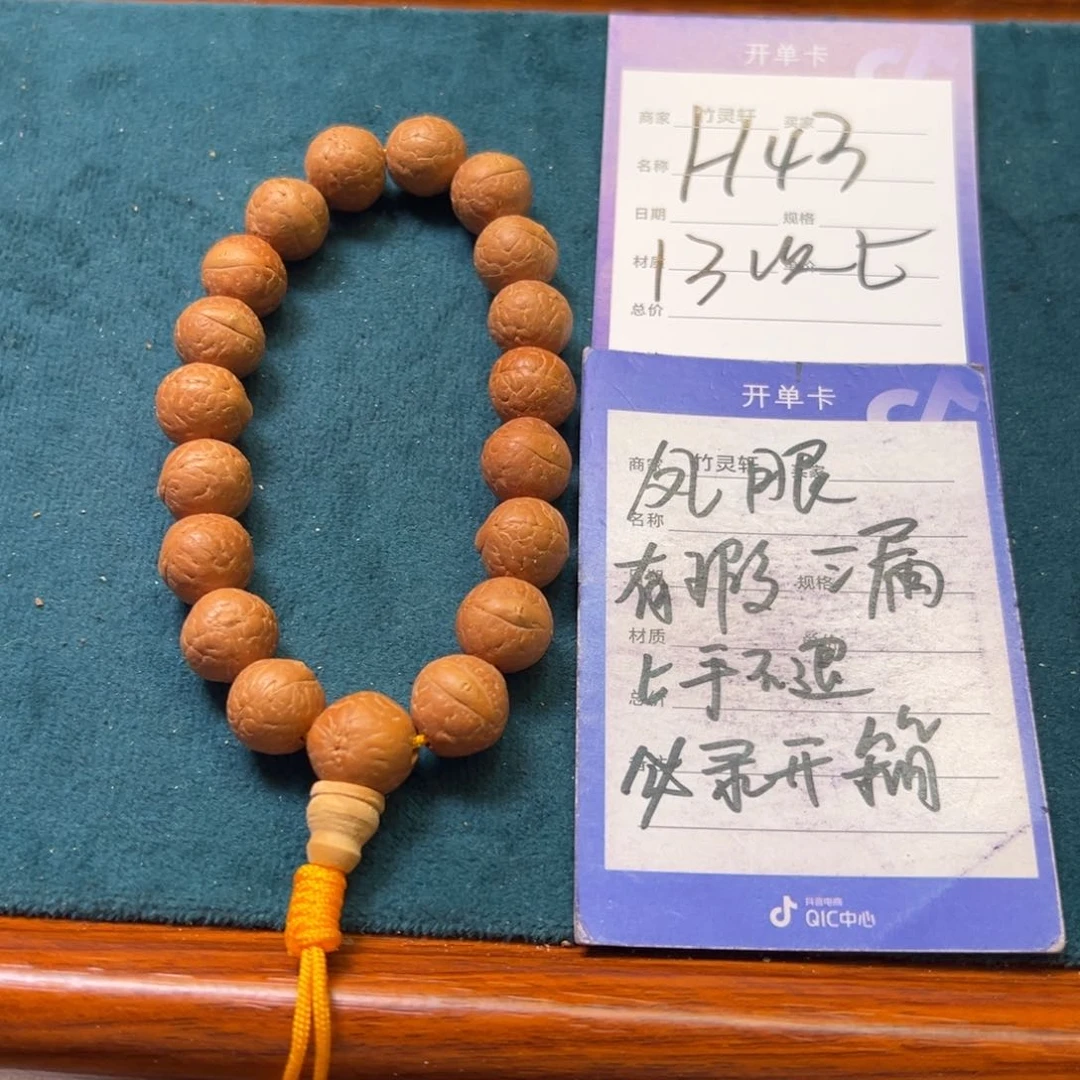 开单卡
商家 竹灵轩 买家
H43
名称
日期 规格
13以上
材质
总价
开单卡
商家 竹灵轩 买家
凤眼
名称
有瑕二漏
规格
材质
上手不退
总价
必录开箱
抖音电商
QIC中心